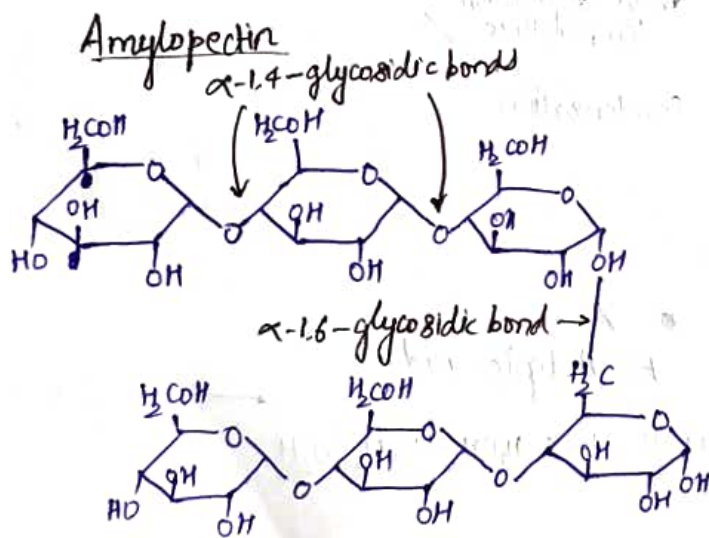 Amylopectin
α-1,4-glycosidic bonds
H₂COH H₂COH H₂COH
O O O
OH OH OH
O O
HO OH OH OH OH
α-1,6-glycosidic bond
H₂COH H₂COH H₂C
O O O
OH OH OH
O O
HO OH OH OH OH